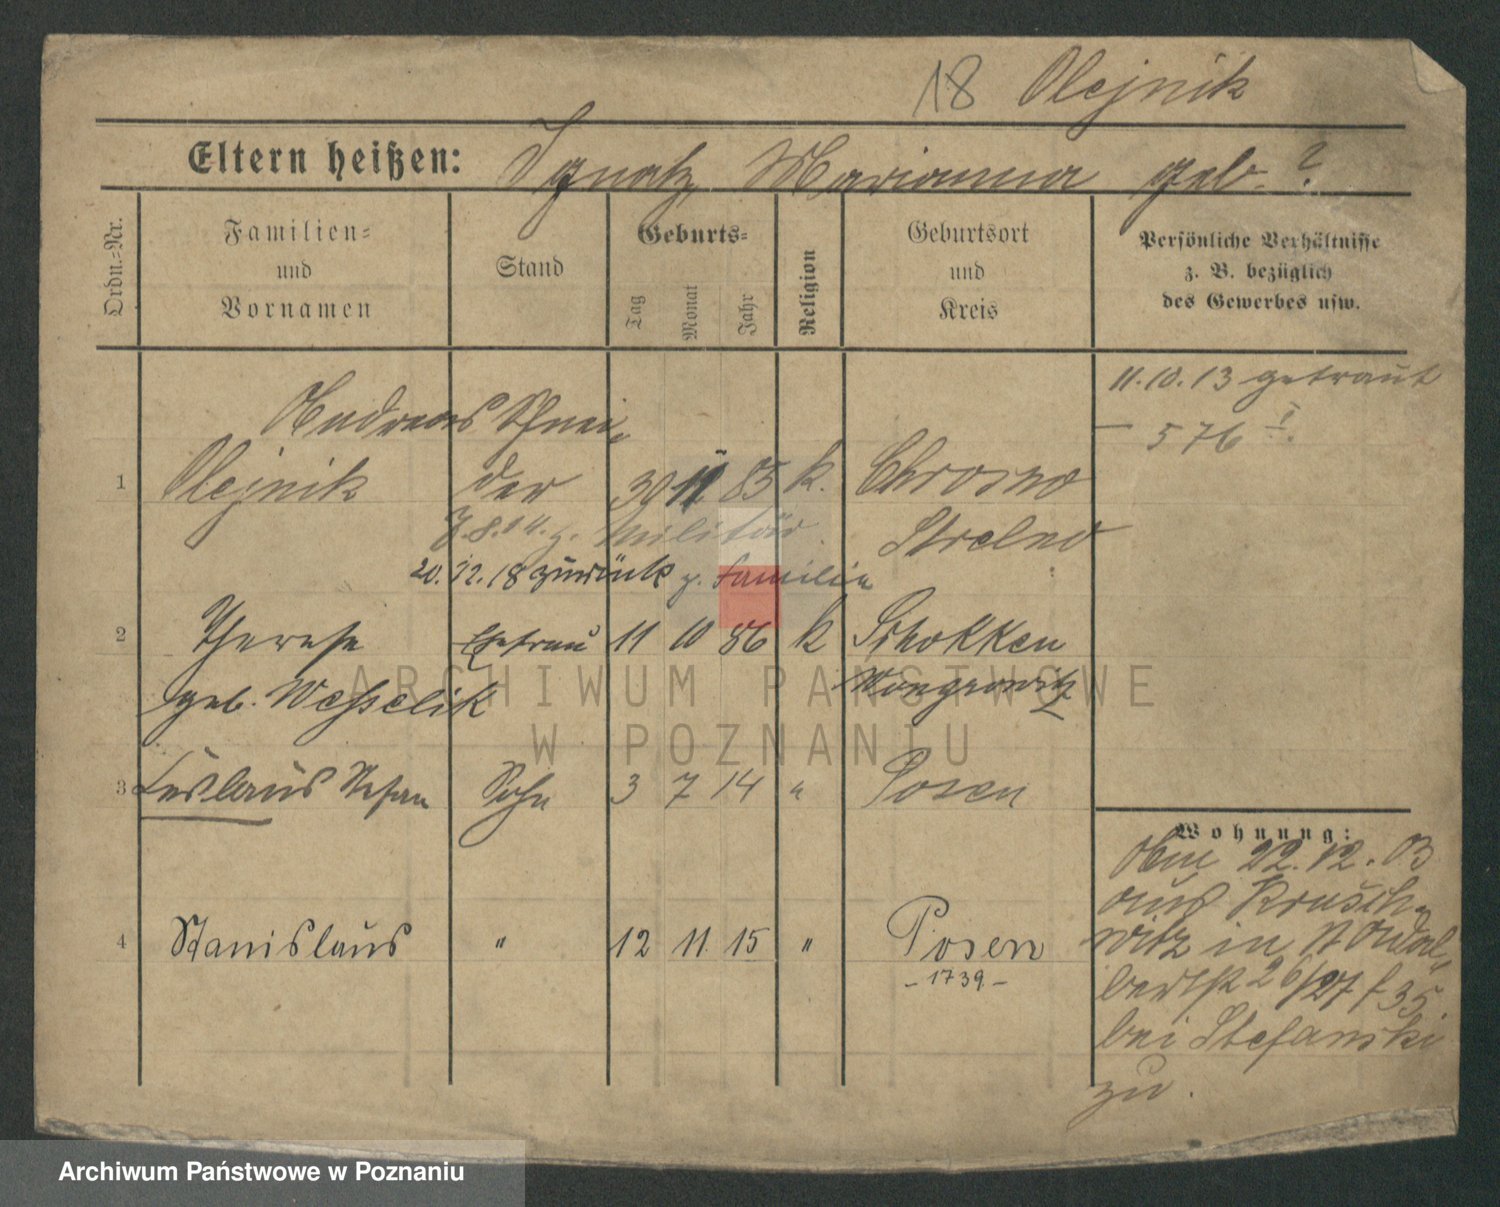 18 Olejnik
Eltern heißen: Ignatz Marianna geb. ?
Ordn.-Nr.
Familien-
und
Vornamen
Stand
Geburts-
Tag
Monat
Jahr
Religion
Geburtsort
und
Kreis
Persönliche Verhältnisse
z. B. bezüglich
des Gewerbes usw.
11.10.13 getraut
— 576 I.
Andreas Schnei-
1 Olejnik der 30 11 85 k. Chrosno
Strelno
7.8.14. z. Militär.
20.12.18 zurück z. Familie
2 Therese Ehefrau 11 10 86 k Schokken
geb. Wesselik Wongrowitz
3 Stefan Sohn 3 7 14 " Posen
4 Stanislaus " 12 11 15 " Posen
- 1739 -
Wohnung:
Am 22.12.03
aus Krusch-
witz in St Adal-
bertstr 26/27 f 35.
bei Stefanski
zu.
ARCHIWUM PAŃSTWOWE
W POZNANIU
Archiwum Państwowe w Poznaniu